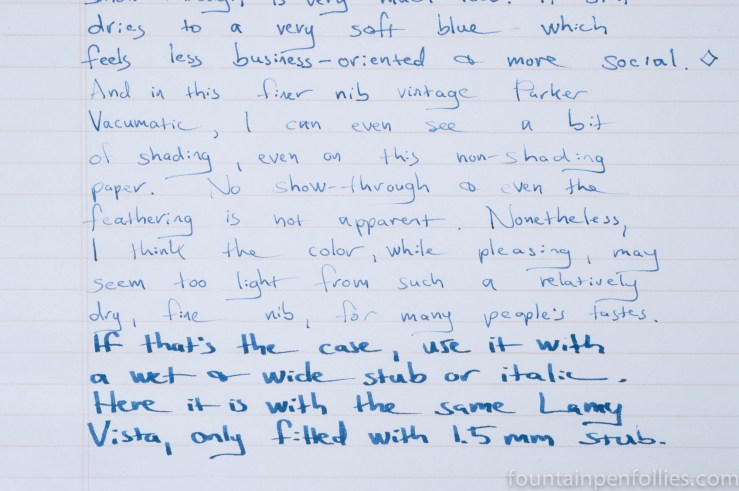 dries to a very soft blue which
feels less business-oriented & more social. ◇
And in this finer nib vintage Parker
Vacumatic, I can even see a bit
of shading, even on this non-shading
paper. No show-through & even the
feathering is not apparent. Nonetheless,
I think the color, while pleasing, may
seem too light from such a relatively
dry, fine nib, for many people's tastes.
If that's the case, use it with
a wet & wide stub or italic.
Here it is with the same Lamy
Vista, only fitted with 1.5 mm stub.
fountainpenfollies.com